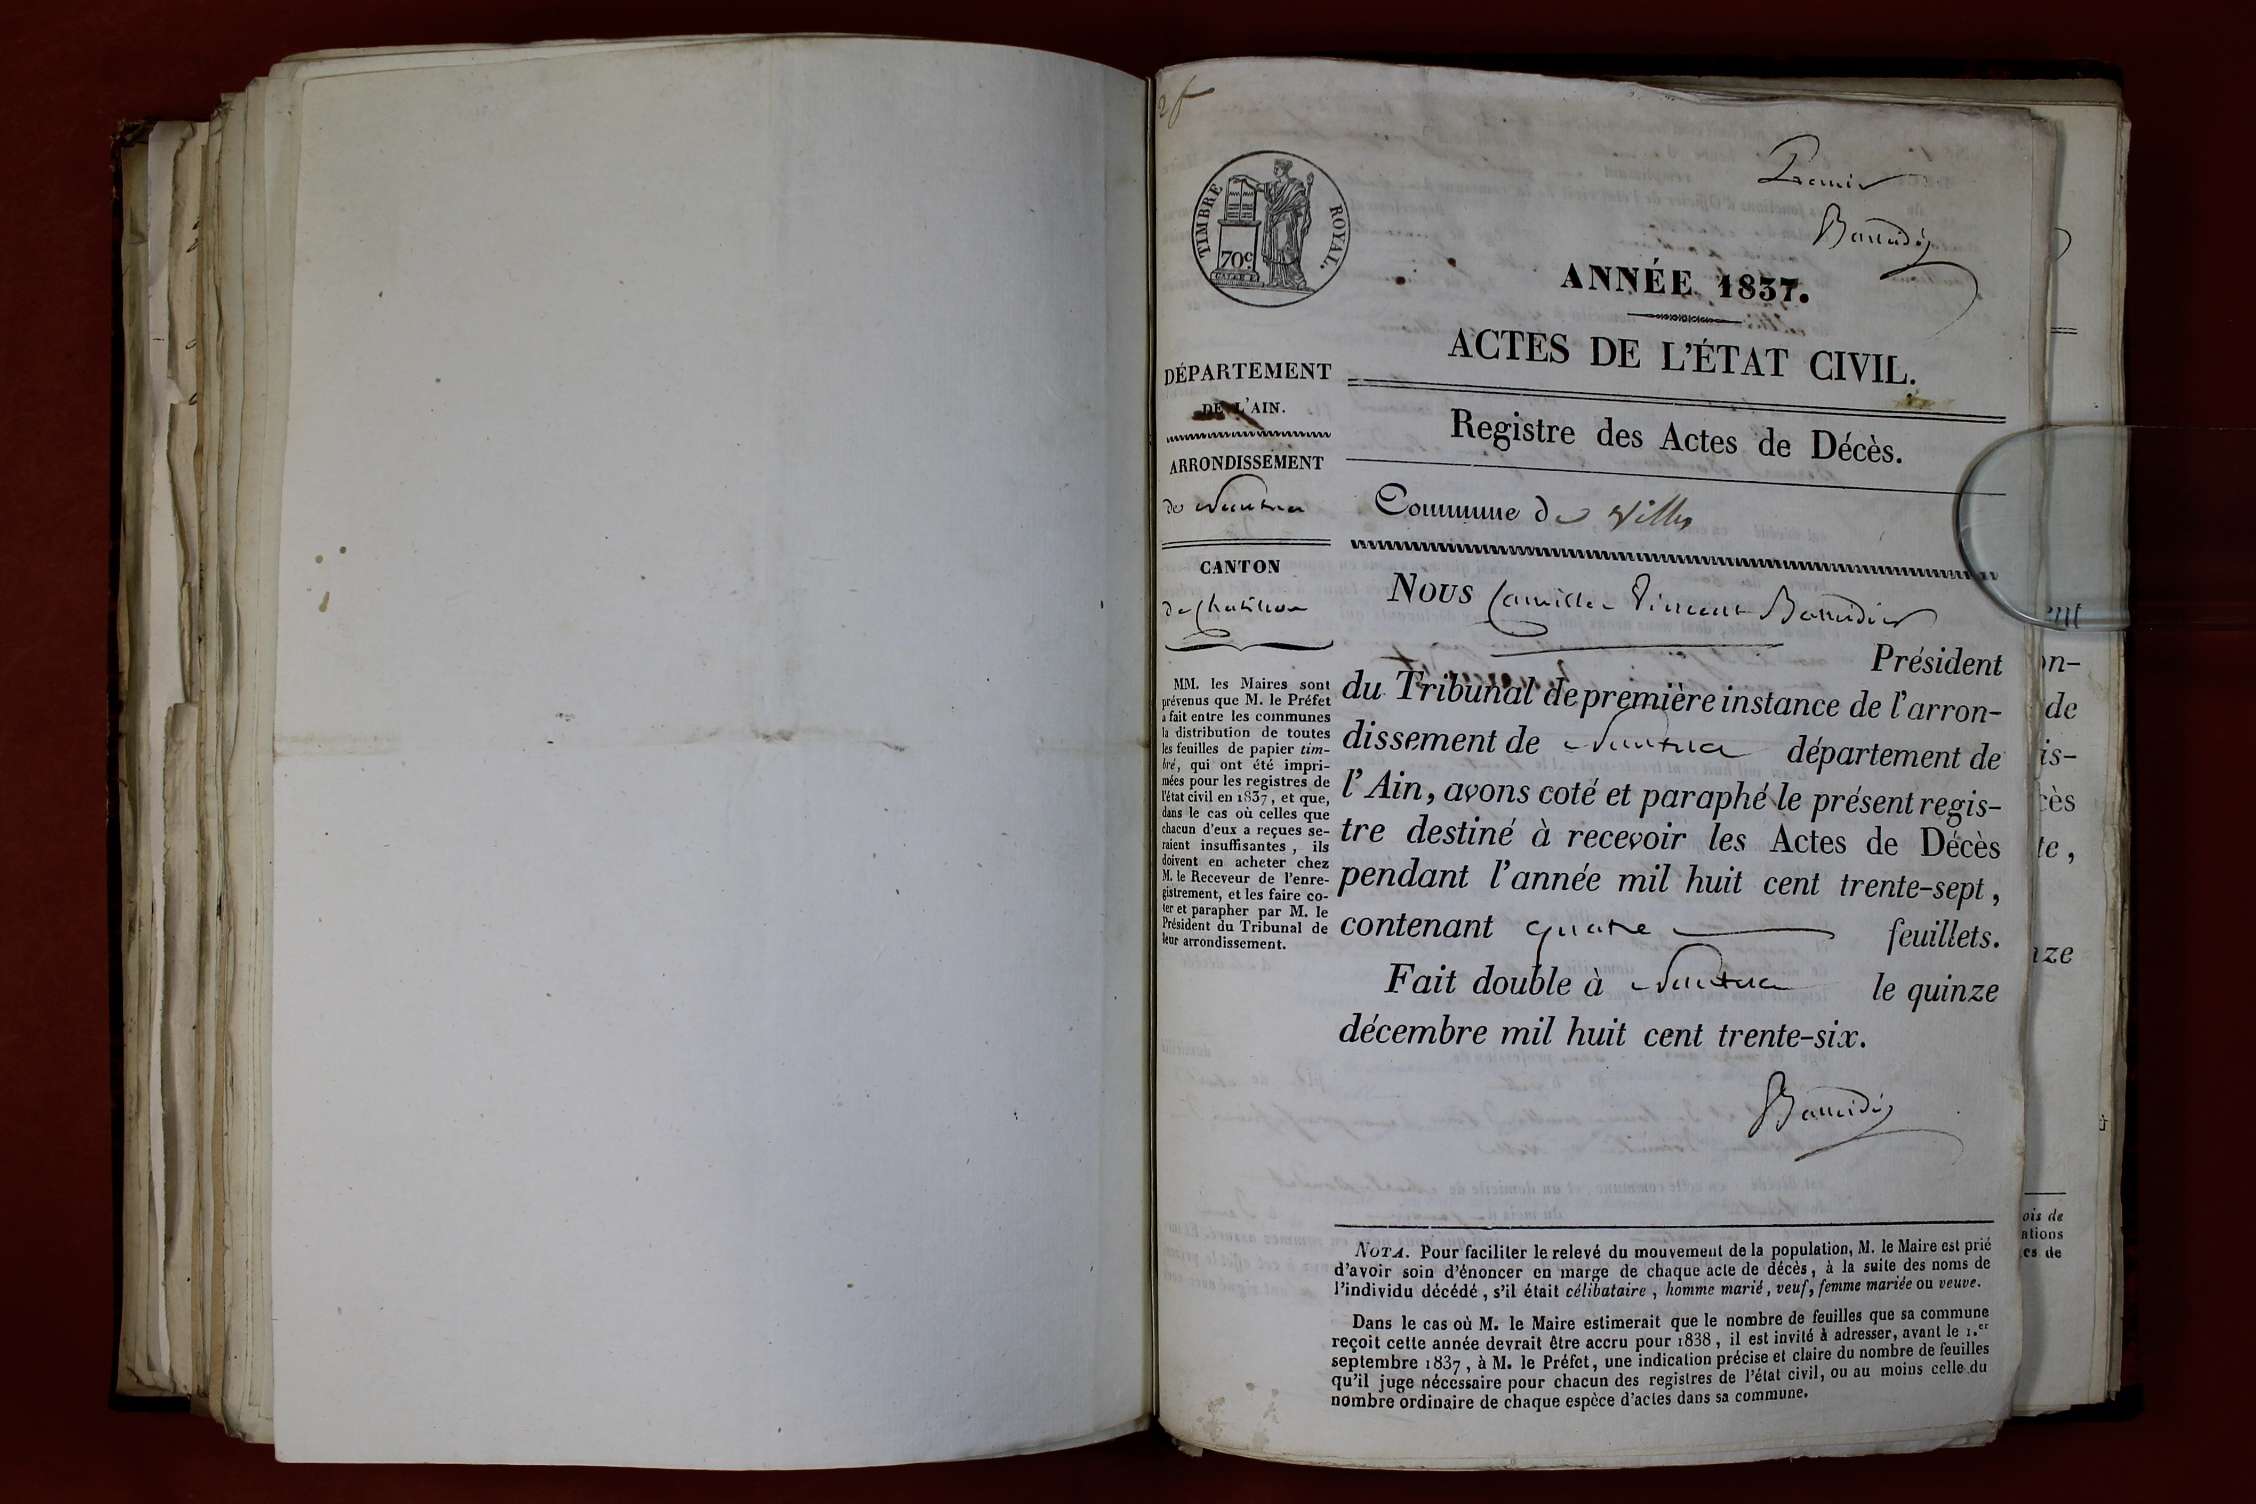 2f
Premier
Baudier
TIMBRE ROYAL.
70c
ANNÉE 1837.
ACTES DE L'ÉTAT CIVIL.
DÉPARTEMENT
DE L'AIN.
ARRONDISSEMENT
de Nantua
CANTON
de Chatillon
MM. les Maires sont
prévenus que M. le Préfet
a fait entre les communes
la distribution de toutes
les feuilles de papier tim-
bré, qui ont été impri-
mées pour les registres de
l'état civil en 1837, et que,
dans le cas où celles que
chacun d'eux a reçues se-
raient insuffisantes, ils
doivent en acheter chez
M. le Receveur de l'enre-
gistrement, et les faire co-
ter et parapher par M. le
Président du Tribunal de
leur arrondissement.
Registre des Actes de Décès.
Commune de Villes
Nous Camille Vincent
Président
du Tribunal de première instance de l'arron-
dissement de Nantua département de
l'Ain, avons coté et paraphé le présent regis-
tre destiné à recevoir les Actes de Décès
pendant l'année mil huit cent trente-sept,
contenant quatre feuillets.
Fait double à Nantua le quinze
décembre mil huit cent trente-six.
NOTA. Pour faciliter le relevé du mouvement de la population, M. le Maire est prié
d'avoir soin d'énoncer en marge de chaque acte de décès, à la suite des noms de
l'individu décédé, s'il était célibataire, homme marié, veuf, femme mariée ou veuve.
Dans le cas où M. le Maire estimerait que le nombre de feuilles que sa commune
reçoit cette année devrait être accru pour 1838, il est invité à adresser, avant le 1.er
septembre 1837, à M. le Préfet, une indication précise et claire du nombre de feuilles
qu'il juge nécessaire pour chacun des registres de l'état civil, ou au moins celle du
nombre ordinaire de chaque espèce d'actes dans sa commune.